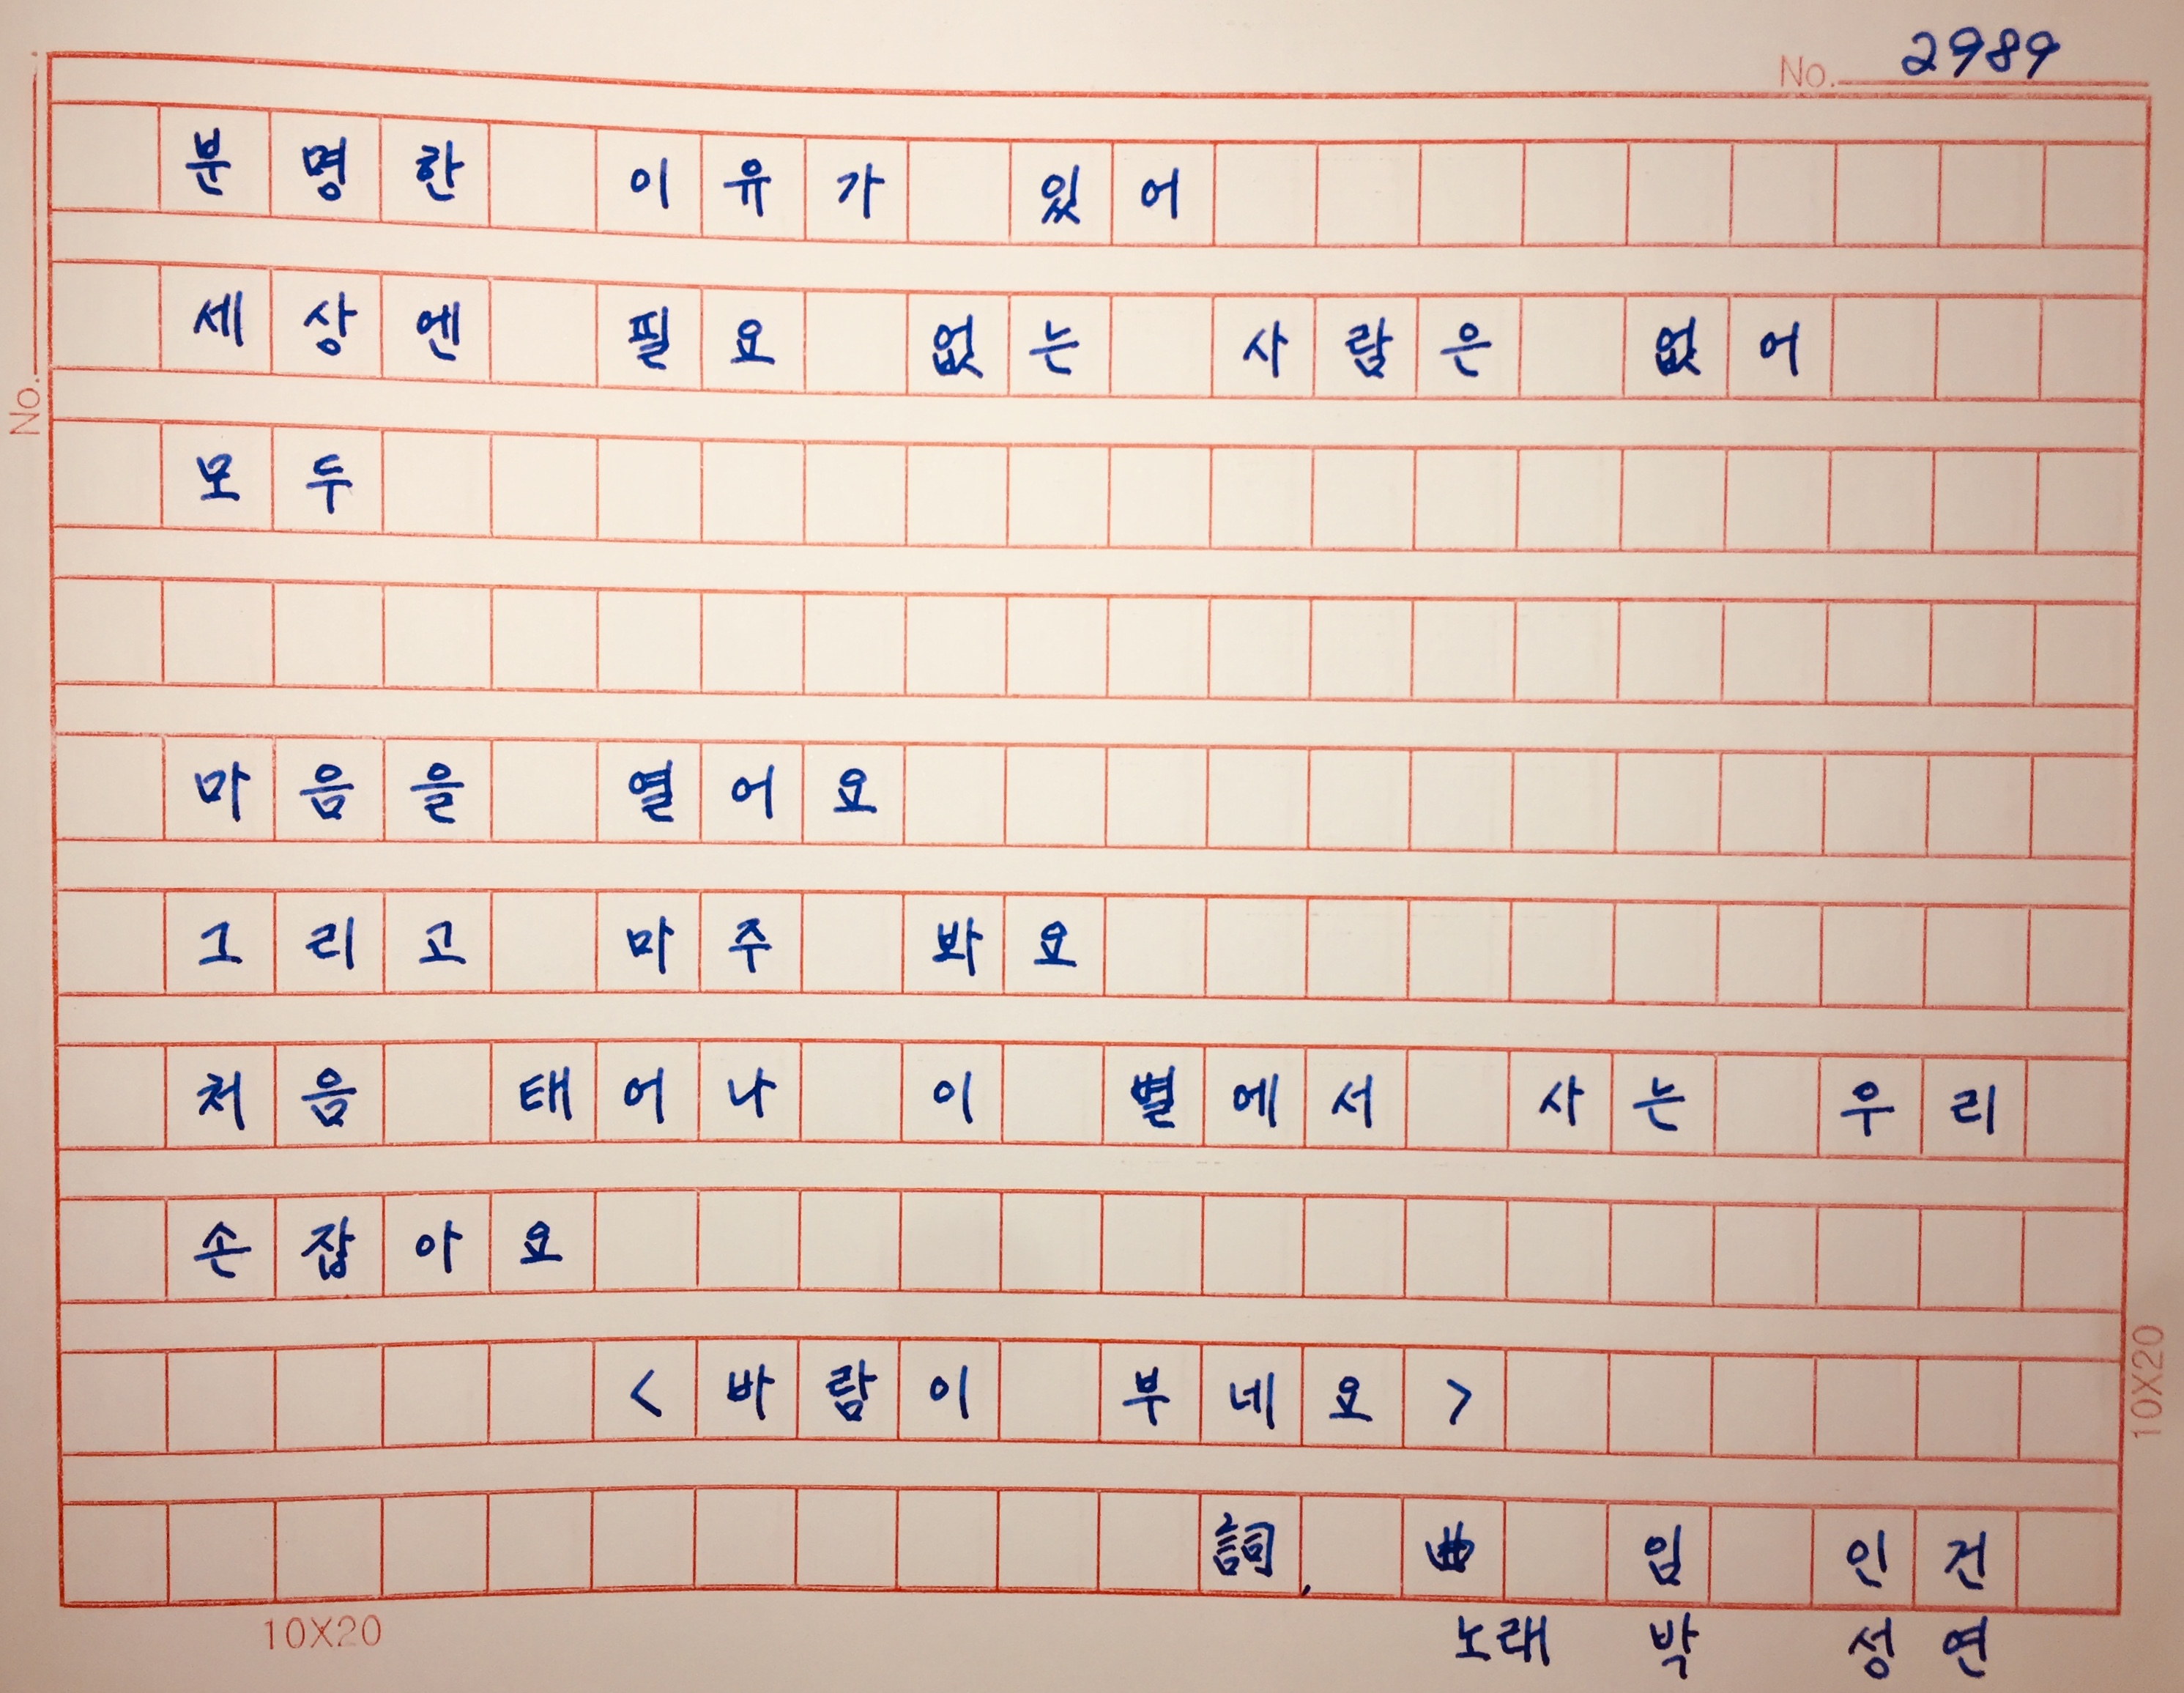 No. 2989
분명한 이유가 있어
세상엔 필요 없는 사람은 없어
모두
마음을 열어요
그리고 마주 봐요
처음 태어나 이 별에서 사는 우리
손잡아요
<바람이 부네요>
詞, 曲 임 인건
노래 박 성연
No.
10X20
10X20